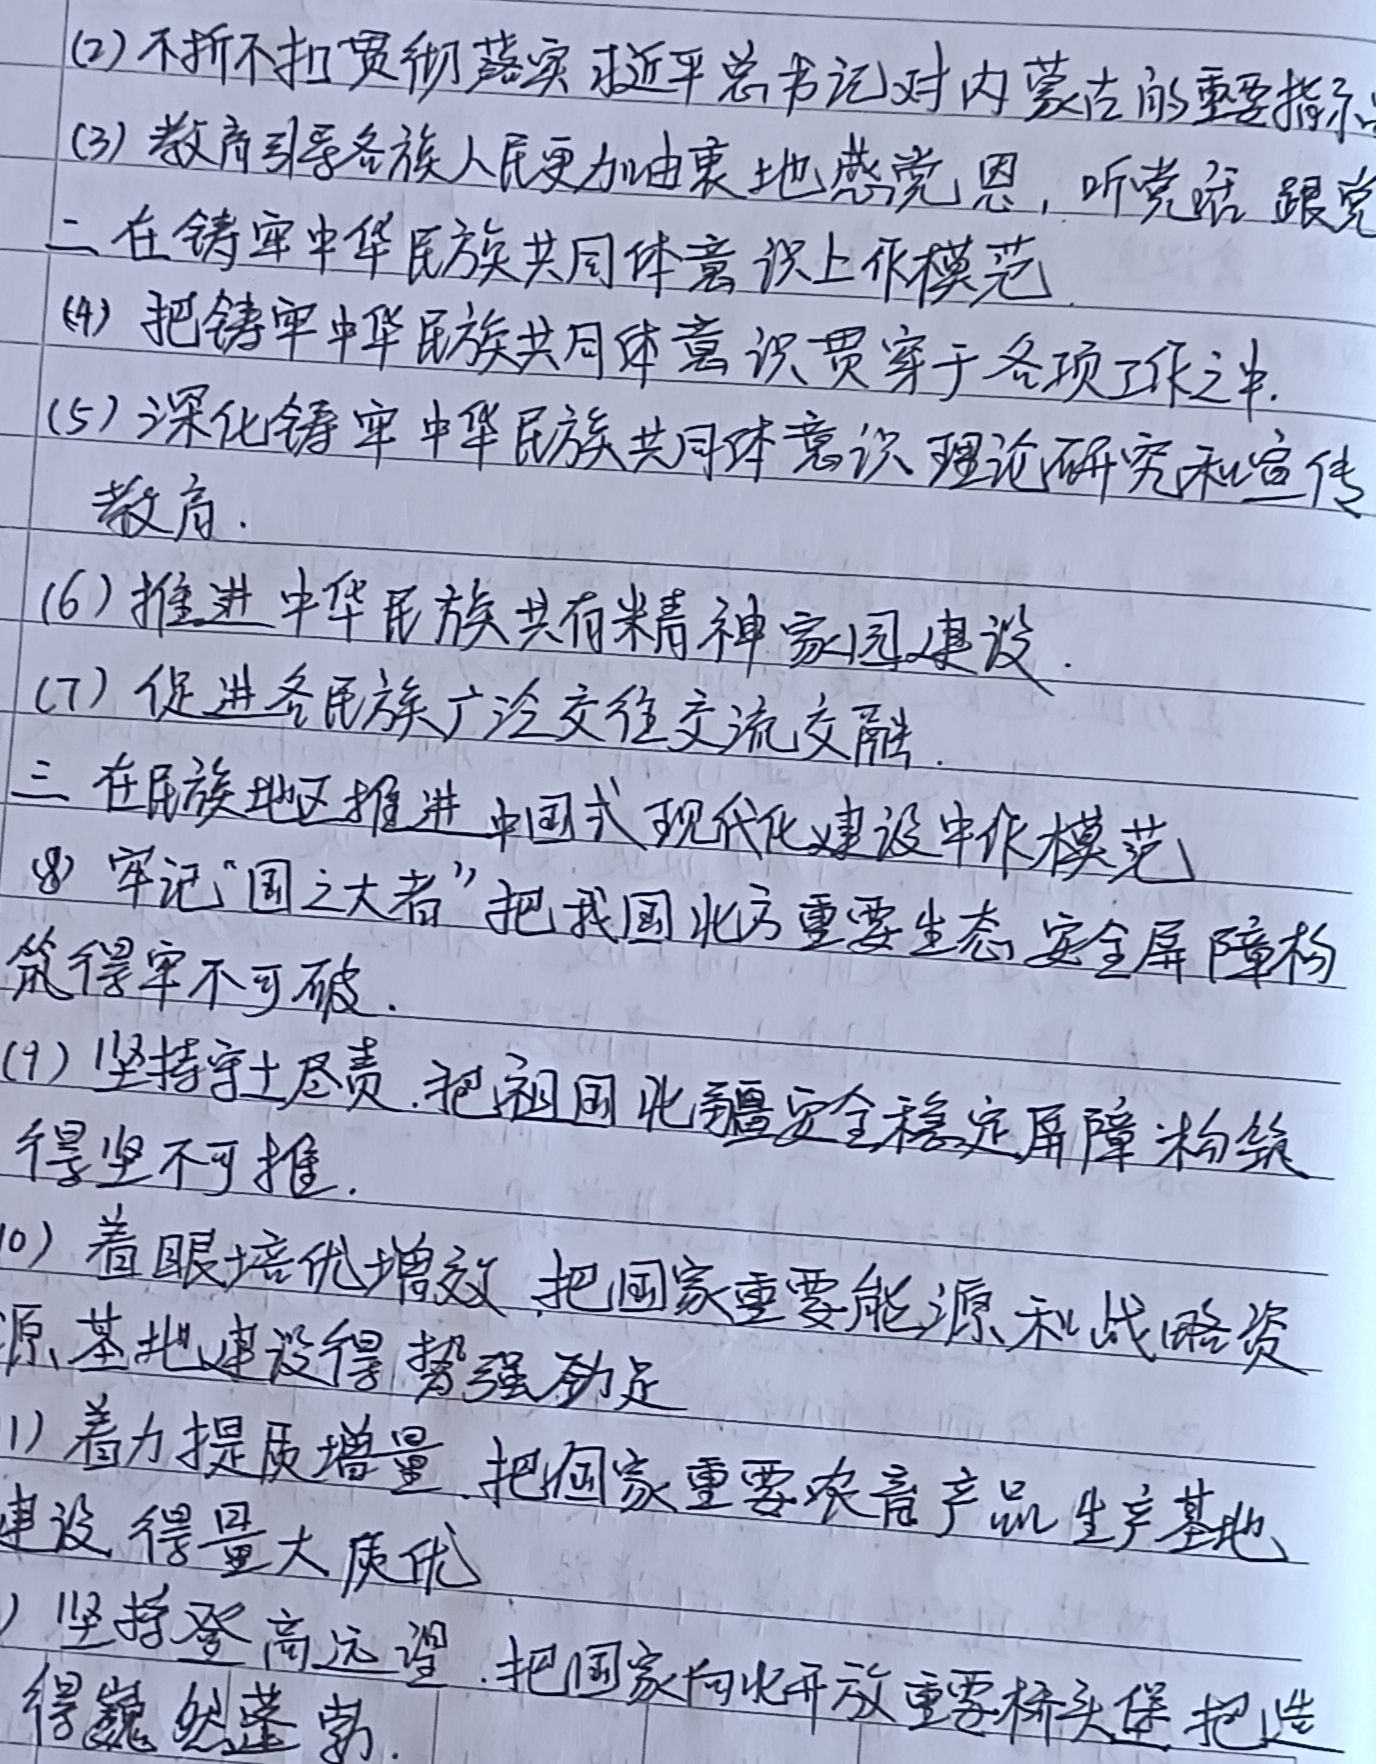 (2) 不折不扣贯彻落实习近平总书记对内蒙古的重要指示
(3) 教育引导各族人民更加由衷地感党恩, 听党话 跟党
二 在铸牢中华民族共同体意识上作模范.
(4) 把铸牢中华民族共同体意识贯穿于各项工作之中.
(5) 深化铸牢中华民族共同体意识理论研究和宣传
教育.
(6) 推进中华民族共有精神家园建设.
(7) 促进各民族广泛交往交流交融.
三 在民族地区推进中国式现代化建设中作模范
(8) 牢记“国之大者”把我国北方重要生态安全屏障构
筑得牢不可破.
(9) 坚持守土尽责.把祖国北疆安全稳定屏障构筑
得坚不可摧.
10) 着眼培优增效.把国家重要能源和战略资
源基地建设得势强劲足
1) 着力提质增量.把国家重要农畜产品生产基地
建设得量大质优
) 坚持登高远望.把国家向北开放重要桥头堡 把造
得巍然蓬勃.